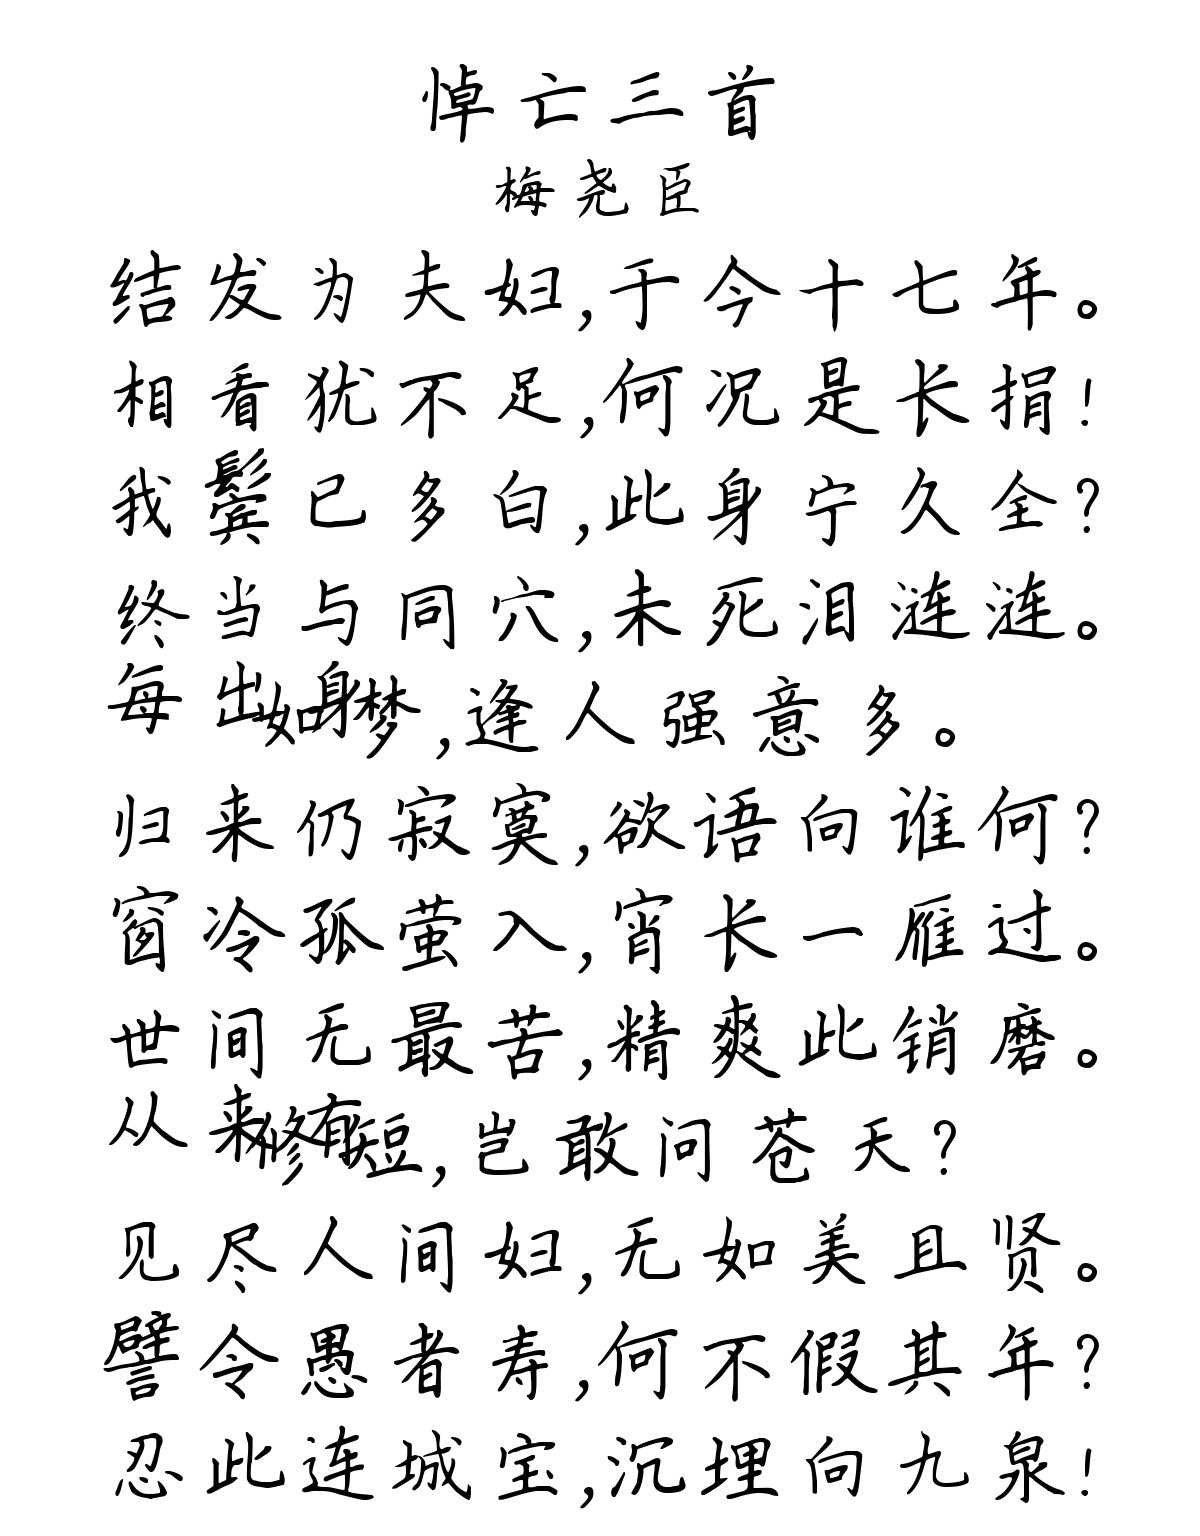 悼亡三首
梅尧臣
结发为夫妇,于今十七年。
相看犹不足,何况是长捐!
我鬓已多白,此身宁久全?
终当与同穴,未死泪涟涟。
每出身如梦,逢人强意多。
归来仍寂寞,欲语向谁何?
窗冷孤萤入,宵长一雁过。
世间无最苦,精爽此销磨。
从来有修短,岂敢问苍天?
见尽人间妇,无如美且贤。
譬令愚者寿,何不假其年?
忍此连城宝,沉埋向九泉!